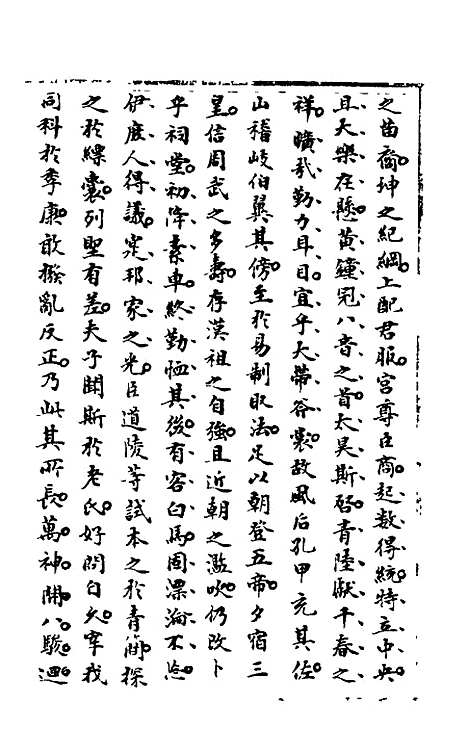 之苗裔坤之紀綱上配君服宮尊臣商起数得統特立中央
且大樂在懸黄鐘冠八音之首太昊斯啓青陸獻千春之
祥曠我勤力耳目宜乎大帶谷裳故風后孔甲充其佐
山稽岐伯翼其傍至於易制取法足以朝登五帝夕宿三
皇信周武之多壽存漢祖之自強且近朝之濫吹仍改卜
乎祠堂初降素車終勤恤其後有客白馬固漂淪不忘
伊庶人得議定邦家之光臣道陵等試本之於青簡探
之於縹囊列聖有差夫子聞斯於老氏好問曰久宰我
同科於季康敢撥亂反正乃此其所長萬神開八駿迴